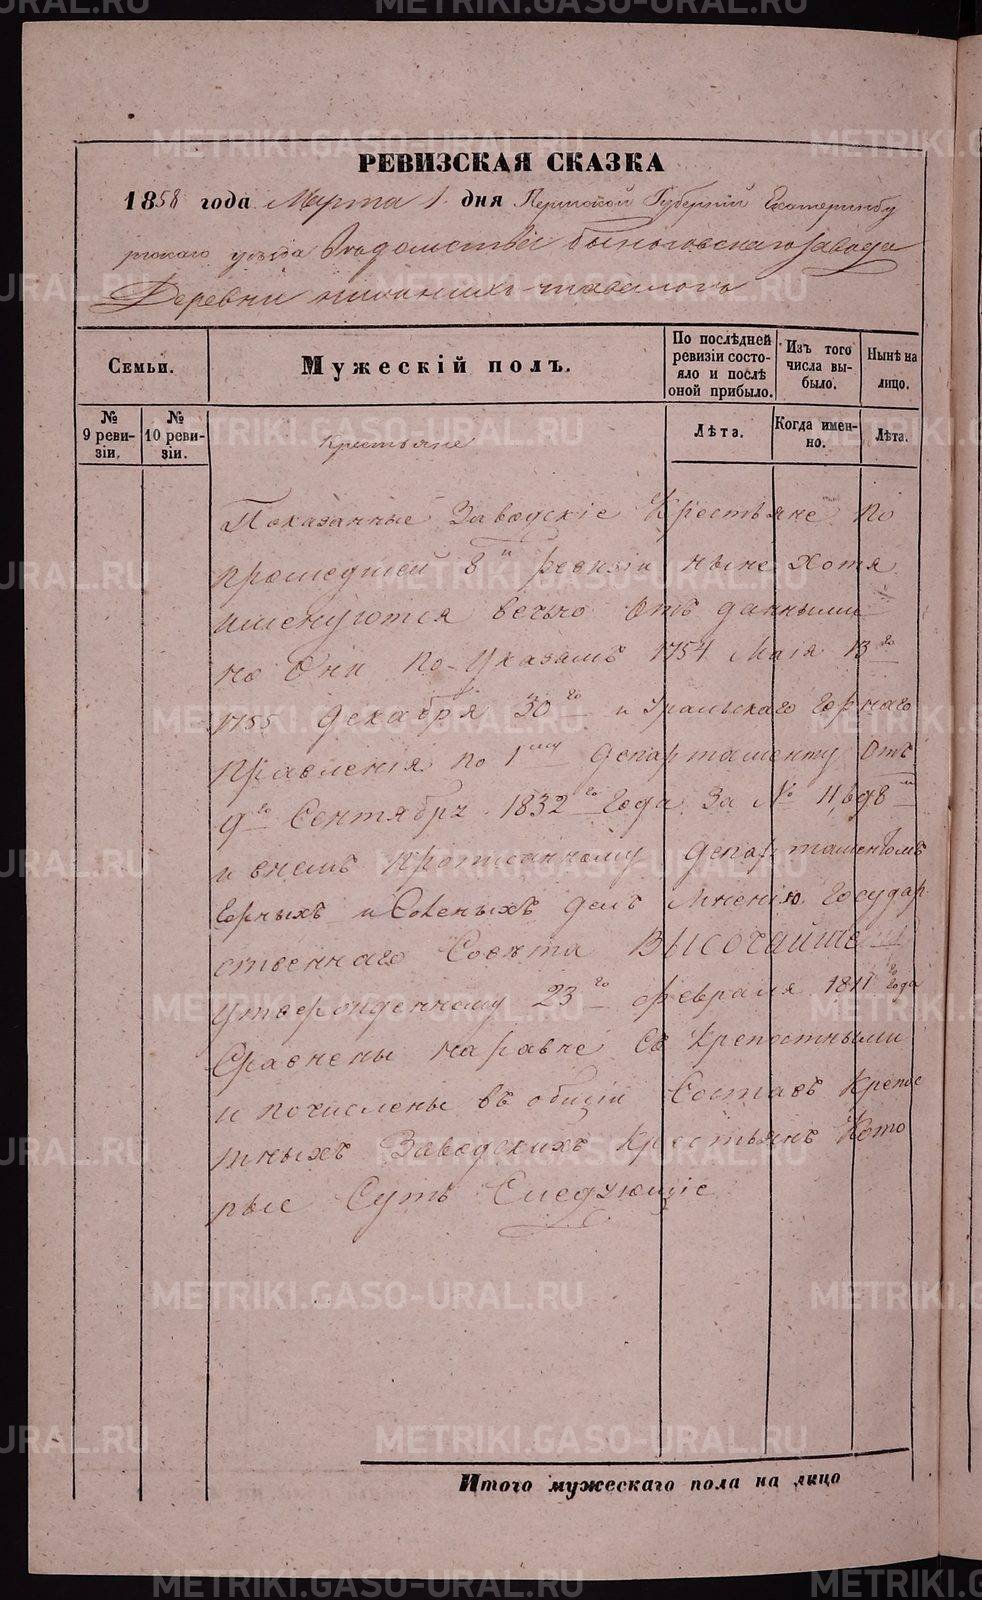 РЕВИЗСКАЯ СКАЗКА
1858 года Марта 1 дня Пермской Губерніи Екатеринбу
ргскаго уезда Быноговскаго завода
Деревни нижнихъ
Семьи.
Мужескій полъ.
По послѣдней ревизіи состояло и послѣ оной прибыло.
Изъ того числа выбыло.
Нынѣ на лицо.
№ 9 ревизіи.
№ 10 ревизіи.
Лѣта.
Когда именно.
Лѣта.
Крестьяне
Показанные Заводскіе Крестьяне по
прошедшей 8й ревизіи ныне хотя
именуются вечно отъ данными
но Они по Указамъ 1754 Маія 13го
1755 декабря 30го и Уральскаго Горнаго
Правленія по 1му департаменту отъ
9го Сентября 1832го Года За №
и прописанному департаментомъ
Горныхъ и Соленыхъ делъ Мненію Государ
ственнаго Совѣта ВЫСОЧАЙШЕ
утвержденному 23го февраля 1811го года
Сравнены наравне Съ крепостными
и почислены въ общій Составъ Крепос
тныхъ Заводскихъ Крестьянъ Кото
рые Суть Следующіе
Итого мужескаго пола на лицо
METRIKI.GASO-URAL.RU